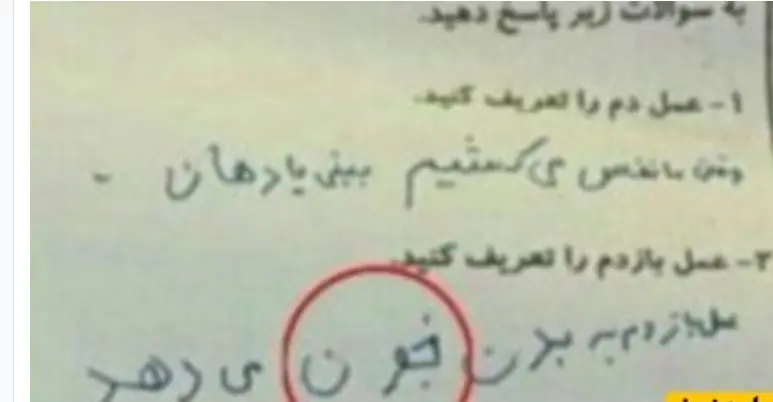 به سوالات زیر پاسخ دهید.
۱- عمل دم را تعریف کنید.
وقتی ما نفس می کشیم بینی یا دهان -
۲- عمل بازدم را تعریف کنید.
عمل بازدم به بدن خون می دهد